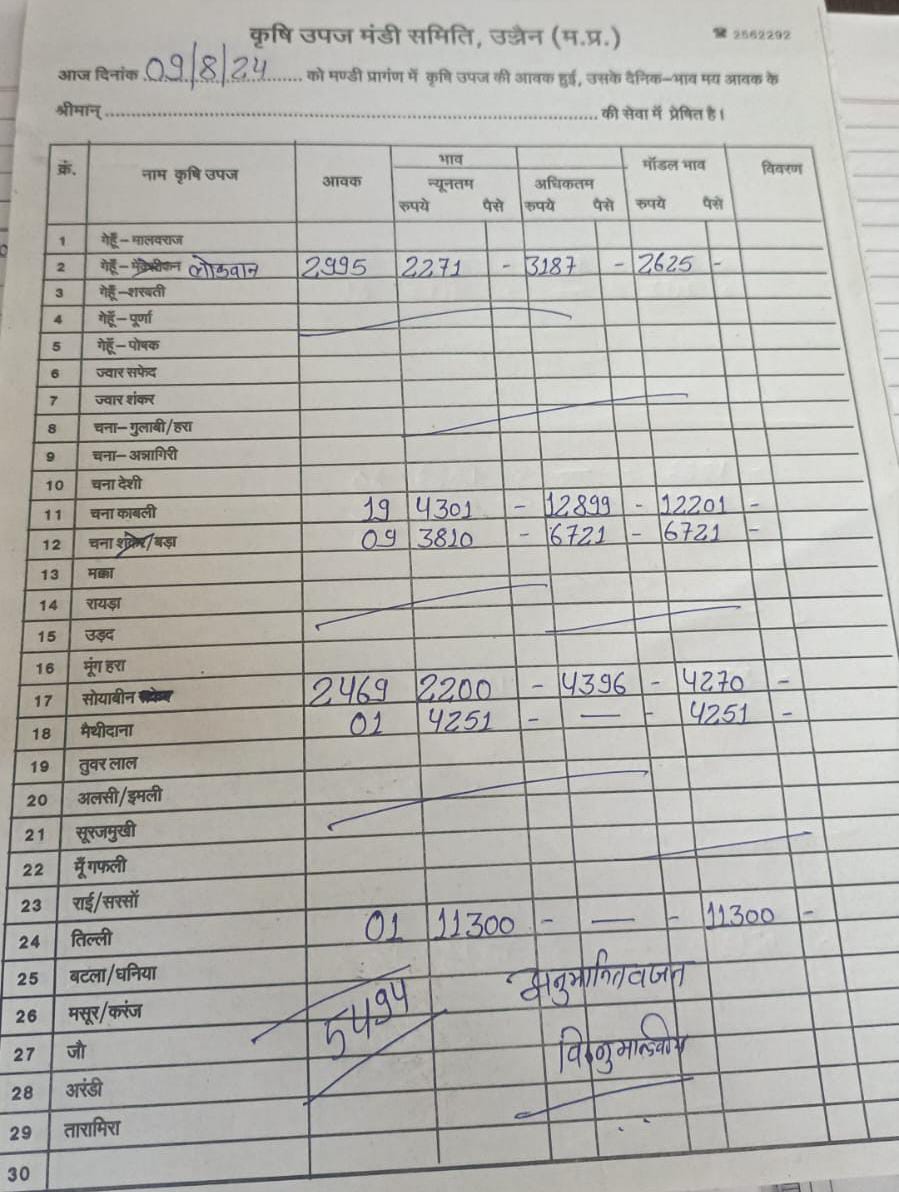 कृषि उपज मंडी समिति, उज्जैन (म.प्र.) ☎ 2562292
आज दिनांक 09/8/24 को मण्डी प्रागंण में कृषि उपज की आवक हुई, उसके दैनिक-भाव मय आवक के
श्रीमान् की सेवा में प्रेषित है।
क्रं. नाम कृषि उपज आवक भाव मॉडल भाव विवरण
न्यूनतम अधिकतम
रुपये पैसे रुपये पैसे रुपये पैसे
1 गेहूँ-मालवराज
2 गेहूँ- लोकवान 2995 2271 - 3187 - 2625 -
3 गेहूँ-शरबती
4 गेहूँ-पूर्णा
5 गेहूँ-पोषक
6 ज्वार सफेद
7 ज्वार शंकर
8 चना-गुलाबी/हरा
9 चना-अन्नागिरी
10 चना देशी
11 चना काबली 19 4301 - 12899 - 12201 -
12 चना शंकर/बड़ा 09 3810 - 6721 - 6721 -
13 मक्का
14 रायड़ा
15 उड़द
16 मूंग हरा
17 सोयाबीन 2469 2200 - 4396 - 4270 -
18 मैथीदाना 01 4251 - — - 4251 -
19 तुवर लाल
20 अलसी/इमली
21 सूरजमुखी
22 मूँगफली
23 राई/सरसों
24 तिल्ली 01 11300 - — - 11300 -
25 बटला/धनिया अनुमानित वजन
26 मसूर/करंज 5494
27 जौ
28 अरंडी
29 तारामिरा
30